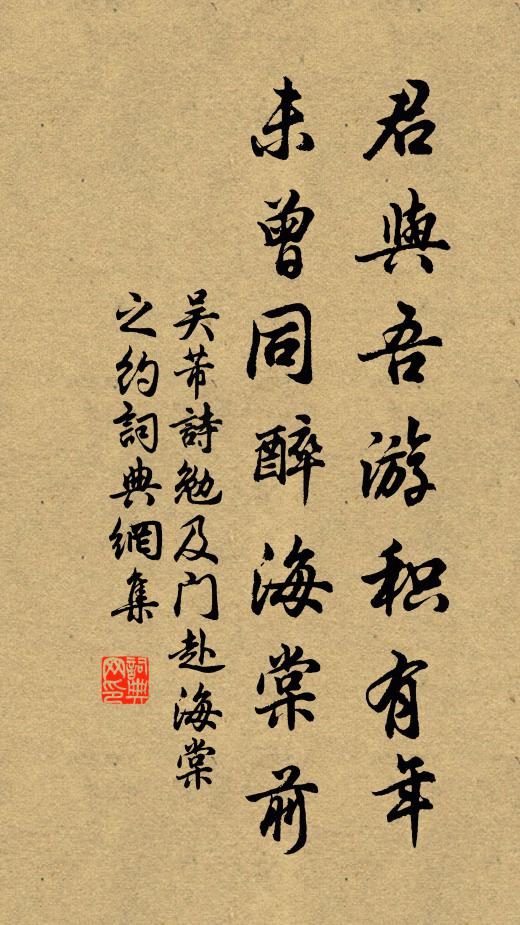 君與吾游积有年
未曾同醉海棠前
吴芾詩勉及门赴海棠
之约詞典網集
詞典
网印